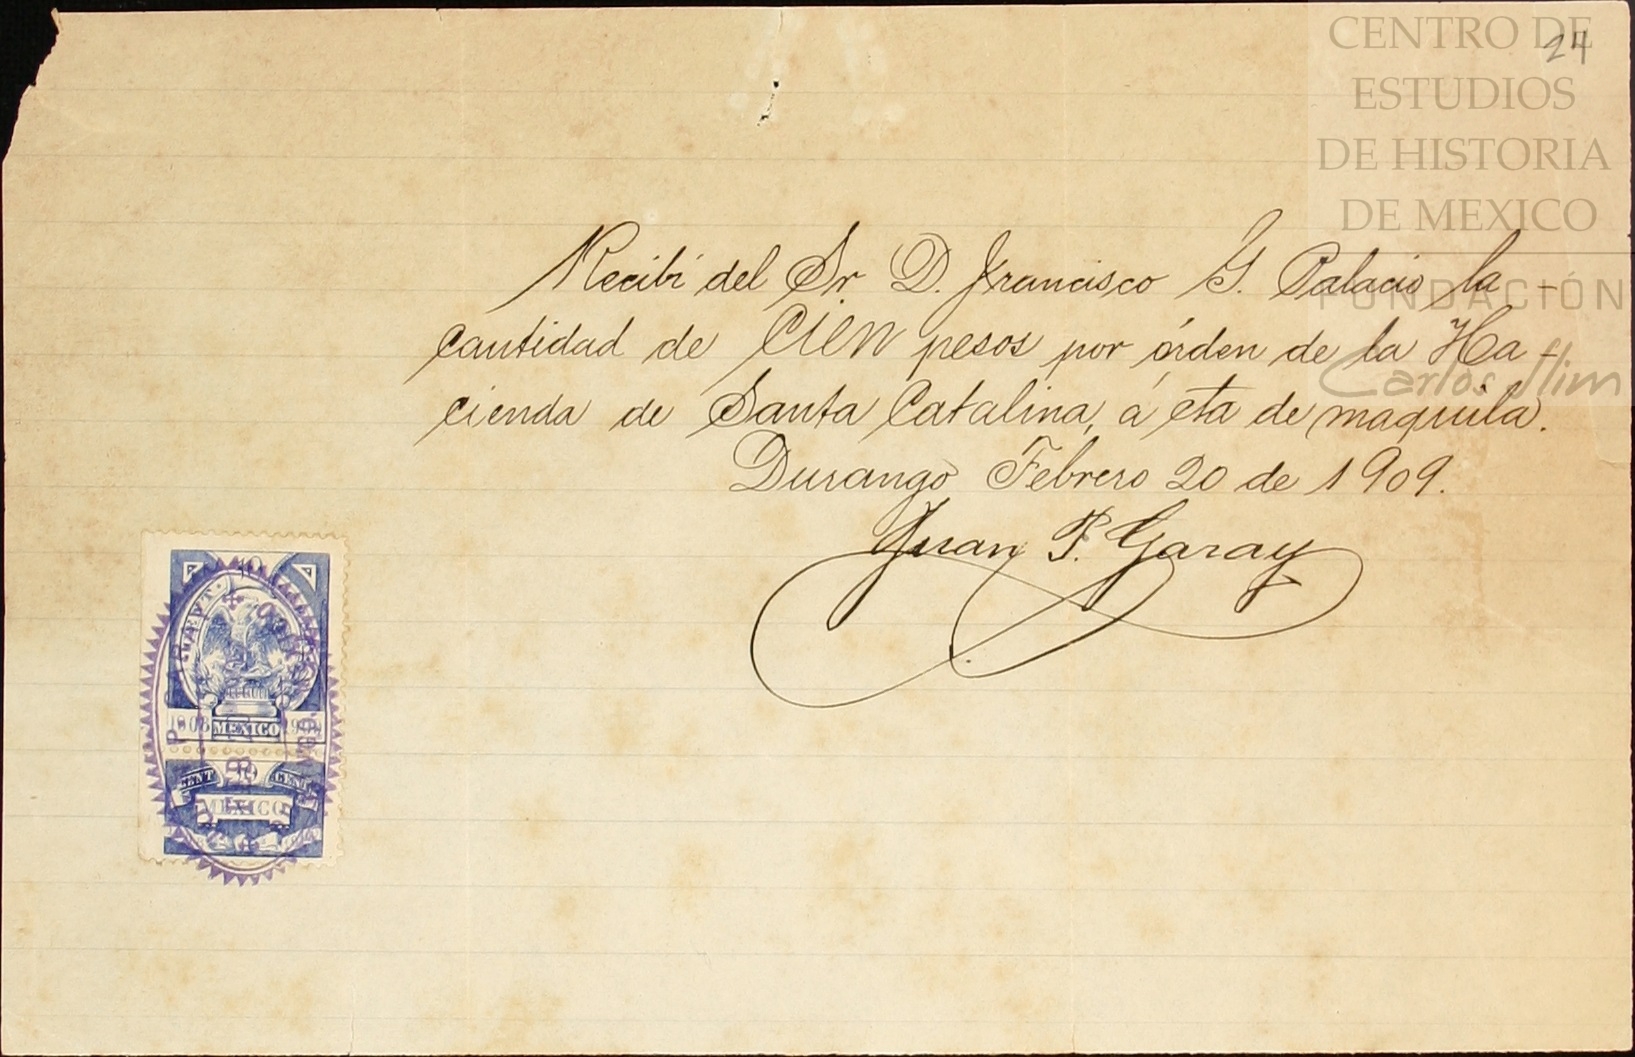 CENTRO DE
ESTUDIOS
DE HISTORIA
DE MEXICO
FUNDACIÓN
Carlos Slim
24
Recibí del Sr. D. Francisco G. Palacio la -
cantidad de CIEN pesos por órden de la Ha-
cienda de Santa Catalina, á cta de maquila.
Durango Febrero 20 de 1909.
Juan P. Garay
10
1908 MEXICO 1909
CENT 10 CENT
MEXICO